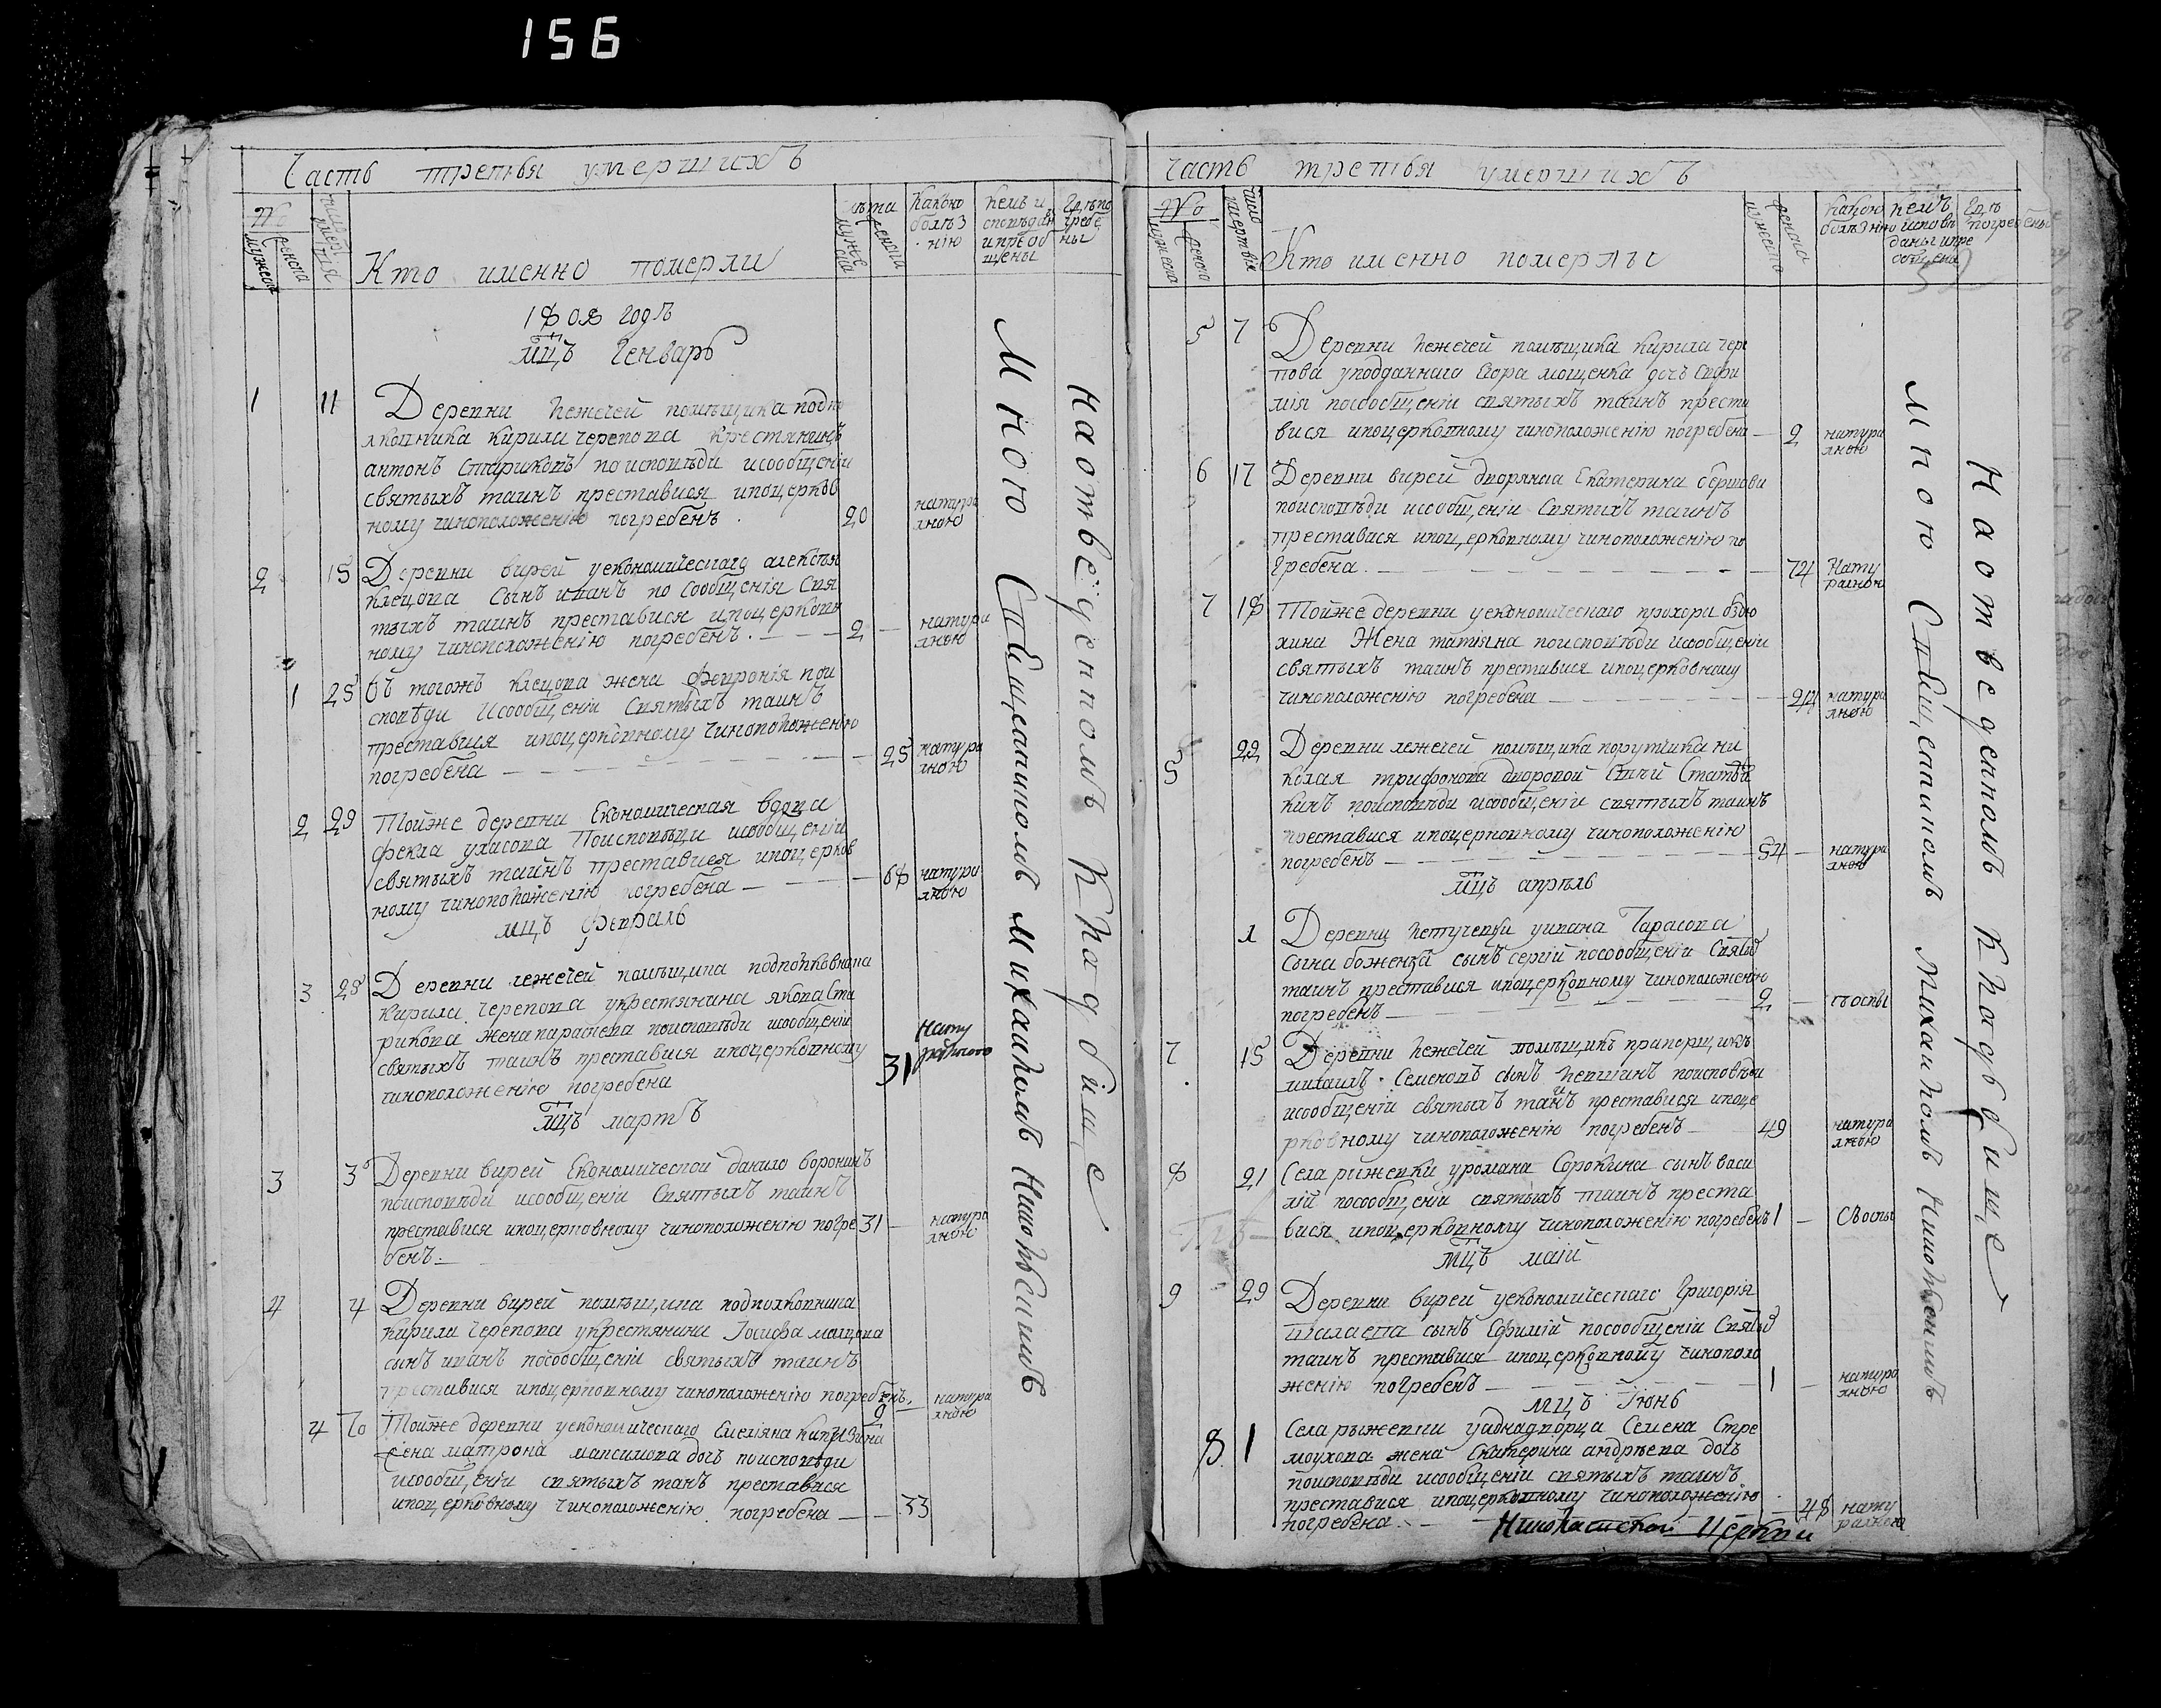 156
Часть третья умершихъ
№
мужеска
женска
Лѣта
муже
ска
женска
Какою
болѣз
нію
Кемъ и
споведан
и преоб
щены
Где по
гребе
ны
Кто именно померли
1808 годъ
мцъ Генварь
1 11 Деревни Лежечей помѣщика подпо
лковника кирила черепова крестянинъ
антонъ стариковъ по исповѣди исообщеніи
святыхъ таинъ преставися ипоцерков
ному чиноположенію погребенъ . 20 натура
лною
2 15 Деревни вирей уекономическаго алексѣя
клецова сынъ иванъ по сообщенія свя
тыхъ таинъ преставися ипоцерковн
ному чиноположенію погребенъ . — 2 — натура
лною
1 25 Тогожъ клецова жена февронія пои
сповѣди исообщеніи святыхъ таинъ
преставися ипоцерковному чиноположенію
погребена — 25 натура
лною
2 29 Тойже деревни Економическая вдова
фекла поисповѣди исообщеніи
святыхъ таинъ преставися ипоцерков
ному чиноположенію погребена — 68 натура
лною
мцъ февраль
3 25 Деревни лежечей помѣщика подполковника
кирила черепова укрестянина якова ста
рикова жена параскева поисповѣди исообщеніи
святыхъ таинъ преставися ипоцерковному
чиноположенію погребена 31 нату
ралною
мцъ мартъ
3 3 Деревни вирей Економической данило воронинъ
поисповѣди исообщеніи святыхъ таинъ
преставися ипоцерковному чиноположенію погре 31 — натура
бенъ — лною
4 4 Деревни вирей помѣщика подполковника
кирила черепова укрестянина Іосифа мацнева
сынъ иванъ посообщеніи святыхъ таинъ
преставися ипоцерковному чиноположенію погребенъ. 2 — натура
лною
4 Тойже деревни уекономическаго Емеліяна
жена матрона максимова дочь поисповѣди
исообщеніи святыхъ танъ преставися
ипоцерковному чиноположенію погребена — 33
Мною Священникомъ Михаиломъ
На отведенномъ кладбище
Часть третья умершихъ
№
мужеска
женска
число
смертвія
мужеска
женска
Какою
болѣзнію
Кемъ
исповѣ
даны ипре
общены
Где
погребены
Кто именно померлы
5 7 Деревни лежечей помѣщика кирила чере
пова уподданнаго мощенка дочъ Евфи
мія посообщеніи святыхъ таинъ преста
вися ипоцерковному чиноположенію погребена — 2 натура
лною
6 17 Деревни вирей дворянка Екатерина
поисповѣди исообщеніи святихъ таинъ
преставися ипоцерковному чиноположенію по
гребена . — 74 Нату
ралною
7 18 Тойже деревни уекономическаго прохора
жена татіяна поисповѣди исообщеніи
святыхъ таинъ преставися ипоцерковному
чиноположенію погребена — 24 натура
лною
5 22 Деревни лежечей помѣщика порутчика ни
колая трифонова дворовой
поисповѣди исообщеніи святыхъ таинъ
преставися ипоцерковному чиноположенію
погребенъ — 54 — натура
лною
мцъ апрѣль
Деревни уивана Тарасова
сына боженка сынъ сергій посообщеніи святыхъ
таинъ преставися ипоцерковному чиноположенію
погребенъ — 2 — воспы
7 15 Деревни лежечей помѣщикъ прапорщикъ
михаилъ Семеновъ сынъ Левшинъ поисповѣди
исообщеніи святыхъ таинъ преставися ипоце
рковному чиноположенію погребенъ — 49 натура
лною
8 21 Села рижевки уромана Сорокина сынъ васи
лій посообщеніи святыхъ таинъ преста
вися ипоцерковному чиноположенію погребенъ 1 — Своспы
мцъ маій
9 29 Деревни вирей уекономическаго Григорія
шалаева сынъ Ефимій посообщеніи святыхъ
таинъ преставися ипоцерковному чинополо
женію погребенъ — 1 — натура
лною
мцъ Іюнь
8 1 Села рыжевки уоднадворца Семена Стре
моухова жена Екатерина андрѣева дочь
поисповѣди исообщеніи святыхъ таинъ
преставися ипоцерковному чиноположенію
погребена — 48 нату
ралною
Николаевской Церкви
Мною Священникомъ Михаиломъ
На отведенномъ кладбище